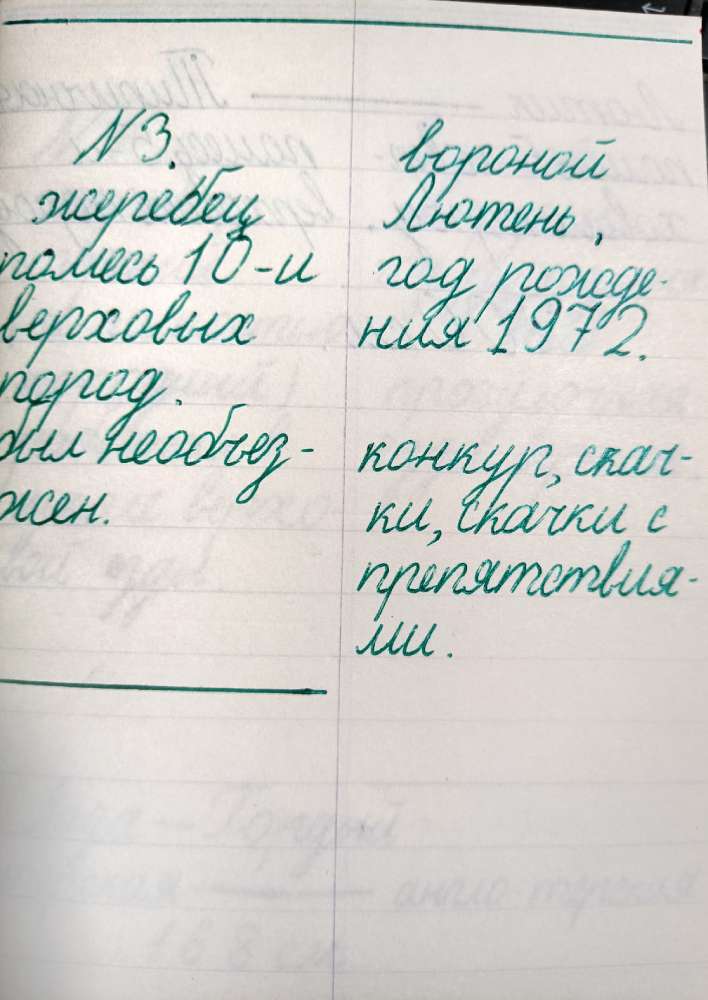 N3.
жеребец
помесь 10-и
верховых
пород.
был необъез-
жен.
вороной
Лютень,
год рожде-
ния 1972.
конкур, скач-
ки, скачки с
препятствия-
ми.